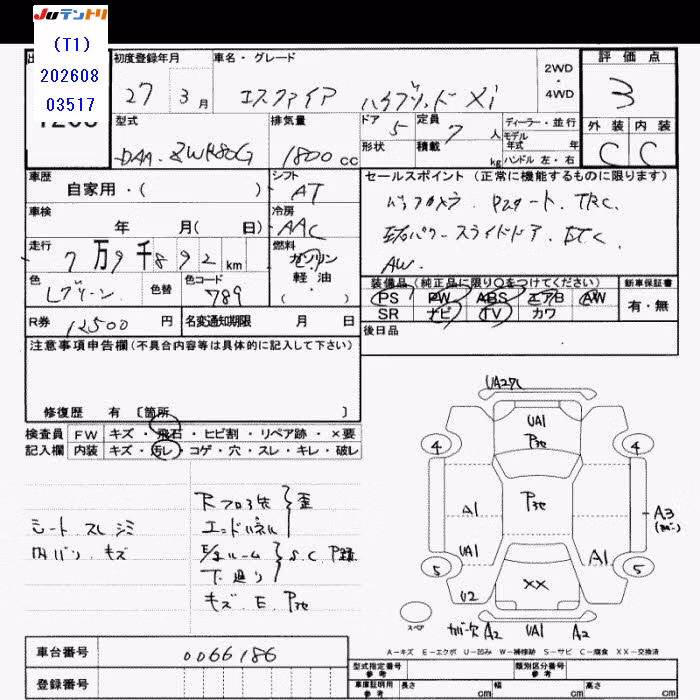 Juテントリ
(T1)
202608
03517
初度登録年月
車名・グレード
27 3月
エスクァイア ハイブリッド Xi
2WD
・
4WD
評価点
3
外装 内装
C C
型式
DAA-ZWR80G
排気量
1800cc
ドア 5
形状
定員 7人
積載 kg
ディーラー・並行
モデル
年式 年
ハンドル 左・右
車歴
自家用・( )
シフト
AT
車検
年 月( 日)
冷房
AAC
走行
7万9千892km
燃料
ガソリン
軽油
( )
色
Lグリーン
色替
色コード
789
R券 12500円
名変通知期限 月 日
セールスポイント(正常に機能するものに限ります)
バックカメラ. Pスタート. TRC.
パワースライドドア. ETC.
AW.
装備品(純正品に限り○をつけてください)
新車保証書
PS PW ABS エアB AW
SR ナビ TV カワ
有・無
後日品
注意事項申告欄(不具合内容等は具体的に記入して下さい)
修復歴 有 〔箇所 〕
検査員 FW キズ・飛石・ヒビ割・リペア跡・×要
記入欄 内装 キズ・汚レ・コゲ・穴・スレ・キレ・破レ
シート スレ シミ
内バリ. キズ
Rフロア先
エンドパネル
歪
E/gルーム
下廻り
S.C P跡
キズ E
UA2
UA1
4 4
A1
UA1
A1
A3
5 5
XX
U2
スペア
カバー欠 A2 UA1 A2
A-キズ E-エクボ U-凹み W-補修跡 S-サビ C-腐食 XX-交換済
車台番号 0066186
登録番号
型式指定番号
参考
類別区分番号
参考
車庫証明用
参考
長さ cm 幅 cm 高さ cm